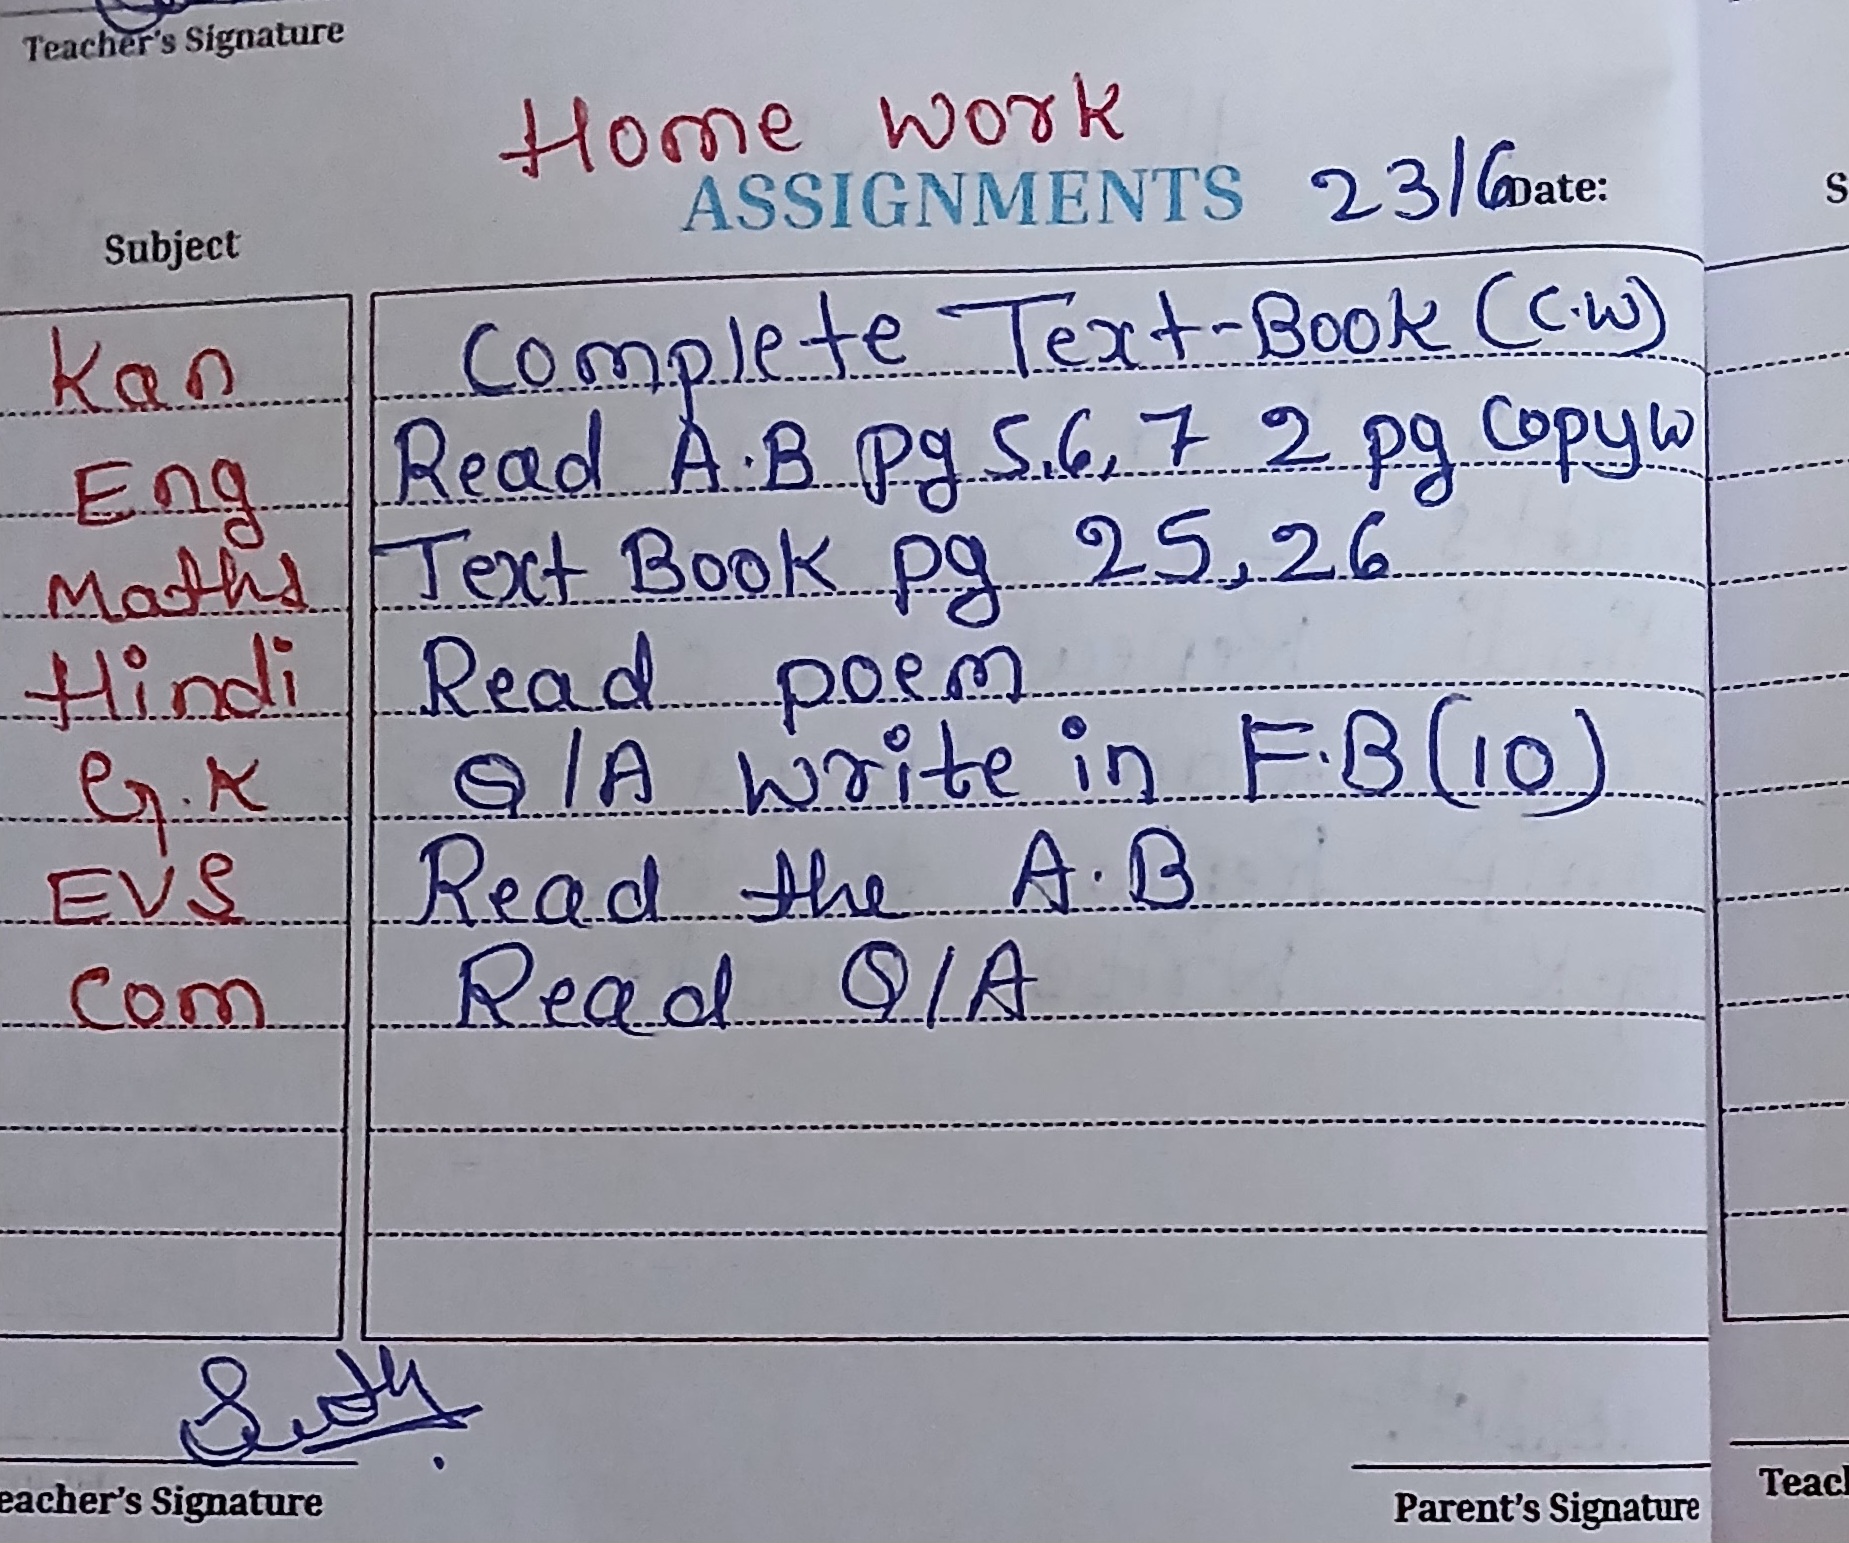 Teacher's Signature
Home Work
ASSIGNMENTS 23/6 Date:
Subject
Kan Complete Text-Book (C.W)
Eng Read A.B pg 5,6,7 2 pg Copyw
Maths Text Book pg 25,26
Hindi Read poem
G.K Q/A Write in F.B (10)
EVS Read the A.B
Com Read Q/A
eacher's Signature
Parent's Signature
Teac